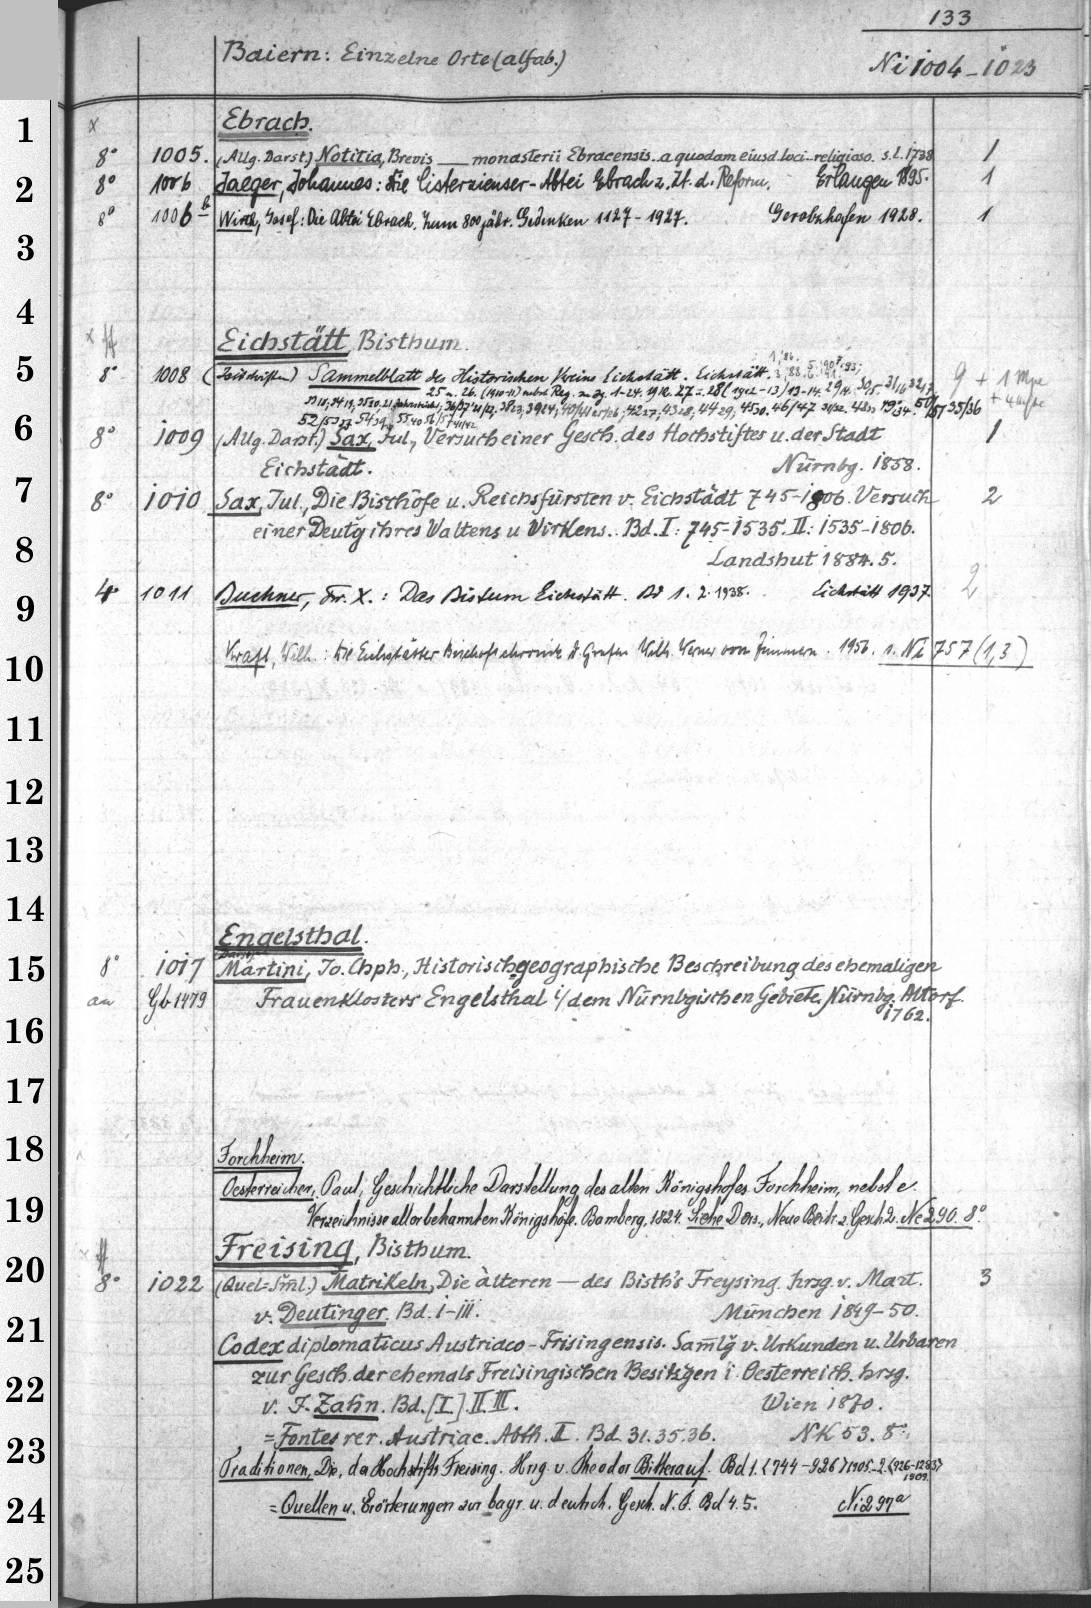 133
Baiern: Einzelne Orte (alfab.)
Ni 1004-1023
1
x Ebrach.
8° 1005. (Allg. Darst.) Notitia, Brevis — monasterii Ebracensis a quodam eiusd. loci religioso. s. l. 1738 1
2
8° 1006 Jaeger, Johannes: Die Cisterzienser-Abtei Ebrach z. Zt. d. Reform. Erlangen 1895. 1
8° 1006 b Wirth, Josef: Die Abtei Ebrach. Zum 800 jähr. Gedenken 1127-1927. Gerolzhofen 1928. 1
3
4
x Eichstätt, Bisthum.
5
8° 1008 (Zeitschriften) Sammelblatt des Historischen Vereins Eichstätt. Eichstätt. 9 + 1 Mpe
25 u. 26. (1910-11) nebst Reg. zu Jg. 1-24. 1912. 27 = 28 (1912-13) 13-14.
6
8° 1009 (Allg. Darst.) Sax, Jul., Versuch einer Gesch. des Hochstiftes u. der Stadt 1
Eichstädt. Nürnbg. 1858.
7
8° 1010 Sax, Jul., Die Bischöfe u. Reichsfürsten v. Eichstädt 745-1806. Versuch 2
einer Deutg ihres Waltens u Wirkens. Bd. I: 745-1535. II: 1535-1806.
8
Landshut 1884. 5.
9
4° 1011 Buchner, Fr. X.: Das Bistum Eichstätt. Bd 1. 2. 1938. Eichstätt 1937. 2
10
Kraft, Wilh.: Die Eichstätter Bischofschronik d. Grafen Wilh. Werner von Zimmern. 1956. s. Ni 757 (1,3)
11
12
13
14
Engelsthal.
15
8° 1017 Martini, Jo. Chph., Historisch-geographische Beschreibung des ehemaligen
an Gb 1479 Frauenklosters Engelsthal i/dem Nürnbgischen Gebiete. Nürnbg. Altorf.
16
1762.
17
18
Forchheim.
Oesterreicher, Paul, Geschichtliche Darstellung des alten Königshofes Forchheim, nebst e.
19
Verzeichnisse aller bekannten Königshöfe. Bamberg, 1824. Siehe Ders., Neue Beitr. z. Gesch 2. Ne 290. 8°
x Freising, Bisthum.
20
8° 1022 (Quel-Sml.) Matrikeln, Die älteren — des Bisth's Freysing. hrsg. v. Mart. 3
v. Deutinger. Bd. I-III. München 1849-50.
21
Codex diplomaticus Austriaco-Frisingensis. Samlg v. Urkunden u. Urbaren
zur Gesch. der ehemals Freisingischen Besitzgen i. Oesterreich. hrsg.
22
v. J. Zahn. Bd. [I] II. III. Wien 1870.
= Fontes rer. Austriac. Abth. II. Bd. 31. 35. 36. NK 53. 8°.
23
Traditionen, Die, des Hochstifts Freising. Hrsg. v. Theodor Bitterauf. Bd 1. (744-926) 1905-2. (926-1283) 1909.
24
= Quellen u. Erörterungen zur bayr. u. deutsch. Gesch. N. F. Bd 4. 5. Ni 297a
25